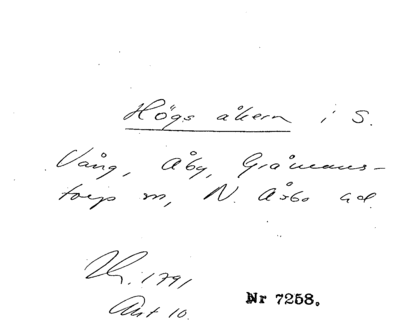 Högs åkern i S.
Vång, Åby, Gråmans-
torp sn, N. Åsbo hd.
Kh. 1791
Akt 10.
Nr 7258.